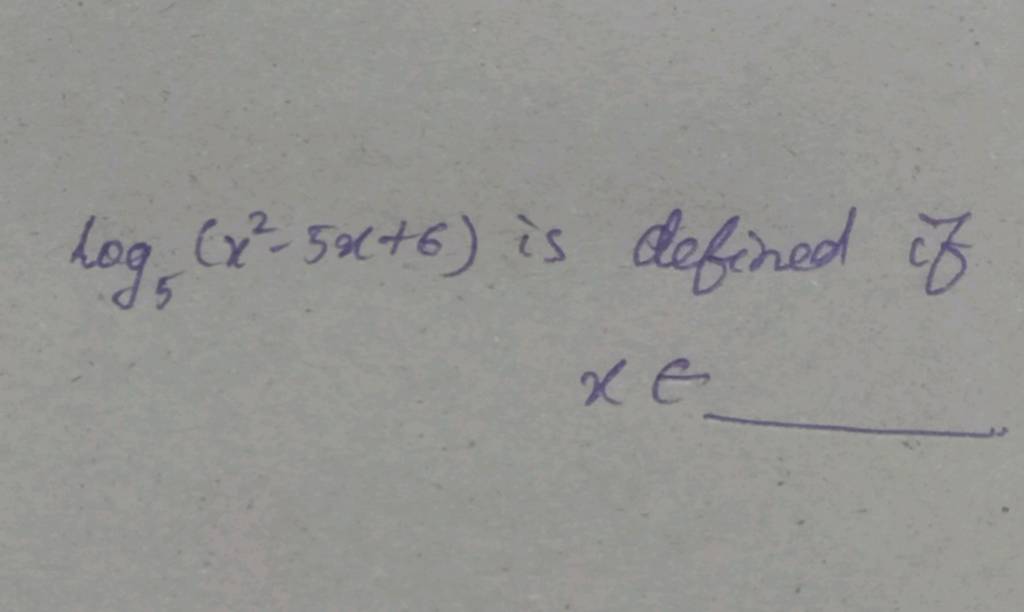 log₅ (x² - 5x + 6) is defined if
x ∈ ______